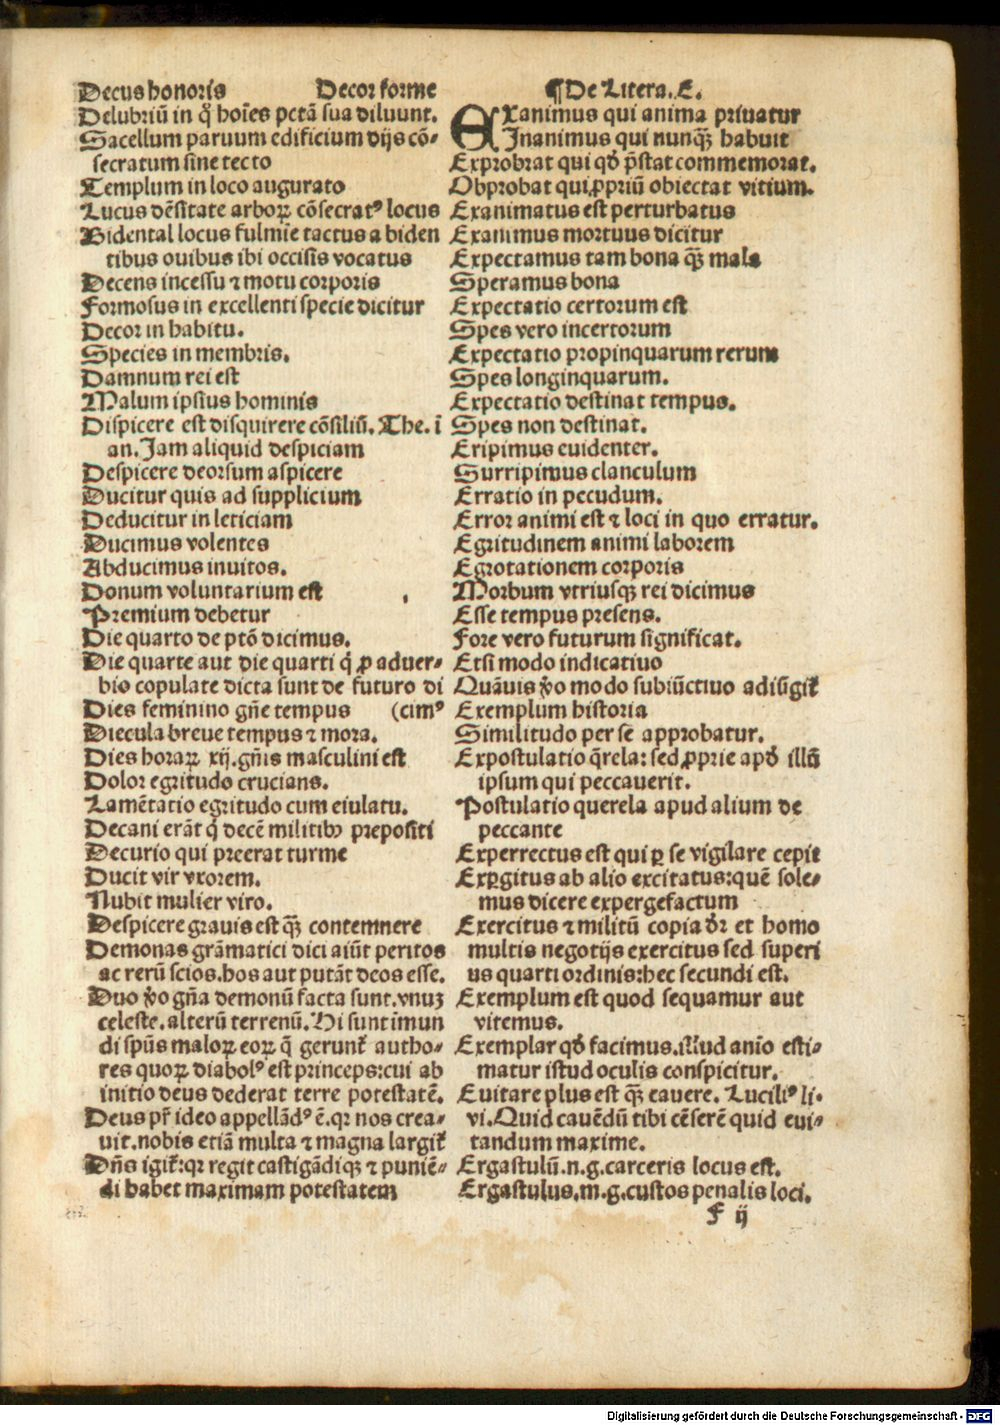 Decus honoris Decor forme
Delubriū in q̄ hoīes pctā sua diluunt.
Sacellum paruum edificium dijs cō-
secratum sine tecto
Templum in loco augurato
Lucus dēsitate arboꝝ cōsecratꝰ locus
Bidental locus fulmīe tactus a biden
tibus ouibus ibi occisis vocatus
Decens incessu ⁊ motu corporis
Formosus in excellenti specie dicitur
Decor in habitu.
Species in membris.
Damnum rei est
Malum ipsius hominis
Dispicere est disquirere cōsiliū. The. ī
an. Jam aliquid despiciam
Despicere deorsum aspicere
Ducitur quis ad supplicium
Deducitur in leticiam
Ducimus volentes
Abducimus inuitos.
Donum voluntarium est
Premium debetur
Die quarto de ptō dicimus.
Die quarte aut die quarti q̄ ꝓ aduer-
bio copulate dicta sunt de futuro di
Dies feminino gn̄e tempus (cimꝰ
Diecula breue tempus ⁊ mora.
Dies horaꝝ xij. gn̄is masculini est
Dolor egritudo crucians.
Lamētatio egritudo cum eiulatu.
Decani erāt q̄ decē militibꝰ prepositi
Decurio qui preerat turme
Ducit vir vxorem.
Nubit mulier viro.
Despicere grauis est qꝫ contemnere
Demonas grāmatici dici aiūt peritos
ac rerū scios. hos aut putāt deos esse.
Duo ꝟo gn̄a demonū facta sunt. vnuꝫ
celeste. alterū terrenū. Hi sunt īmun
di spūs maloꝝ eoꝝ q̄ gerunt̉ autho-
res quoꝝ diabolꝰ est princeps: cui ab
initio deus dederat terre potestatē.
Deus pr̄ ideo appellādꝰ ē. qꝛ nos crea-
uit. nobis etiā multa ⁊ magna largit̉
Dn̄s igit̉: qꝛ regit castigādiqꝫ ⁊ puniē-
di habet maximam potestatem
¶ De Litera. E.
EXanimus qui anima priuatur
Jnanimus qui nunqꝫ habuit
Exprobrat qui qď p̄stat commemorat.
Obprobat qui ꝓpriū obiectat vitium.
Exanimatus est perturbatus
Exanimus mortuus dicitur
Expectamus tam bona qꝫ mala
Speramus bona
Expectatio certorum est
Spes vero incertorum
Expectatio propinquarum rerum
Spes longinquarum.
Expectatio destinat tempus.
Spes non destinat.
Eripimus euidenter.
Surripimus clanculum
Erratio in pecudum.
Error animi est ⁊ loci in quo erratur.
Egritudinem animi laborem
Egrotationem corporis
Morbum vtriusqꝫ rei dicimus
Esse tempus presens.
Fore vero futurum significat.
Etsi modo indicatiuo
Quāuis ꝟo modo subiūctiuo adiūgit̉
Exemplum historia
Similitudo per se approbatur.
Expostulatio q̄rela: sed ꝓprie apď illū
ipsum qui peccauerit.
Postulatio querela apud alium de
peccante
Experrectus est qui ꝑ se vigilare cepit
Exꝑgitus ab alio excitatus: quē sole-
mus dicere expergefactum
Exercitus ⁊ militū copia dr̄ et homo
multis negotijs exercitus sed superi
us quarti ordinis: hec secundi est.
Exemplum est quod sequamur aut
vitemus.
Exemplar qď facimus. illud anīo esti-
matur istud oculis conspicitur.
Euitare plus est qꝫ cauere. Luciliꝰ li-
vi. Quid cauēdū tibi cēserē quid eui-
tandum maxime.
Ergastulū. n. g. carceris locus est.
Ergastulus. m. g. custos penalis loci.
F ij
Digitalisierung gefördert durch die Deutsche Forschungsgemeinschaft - DFG